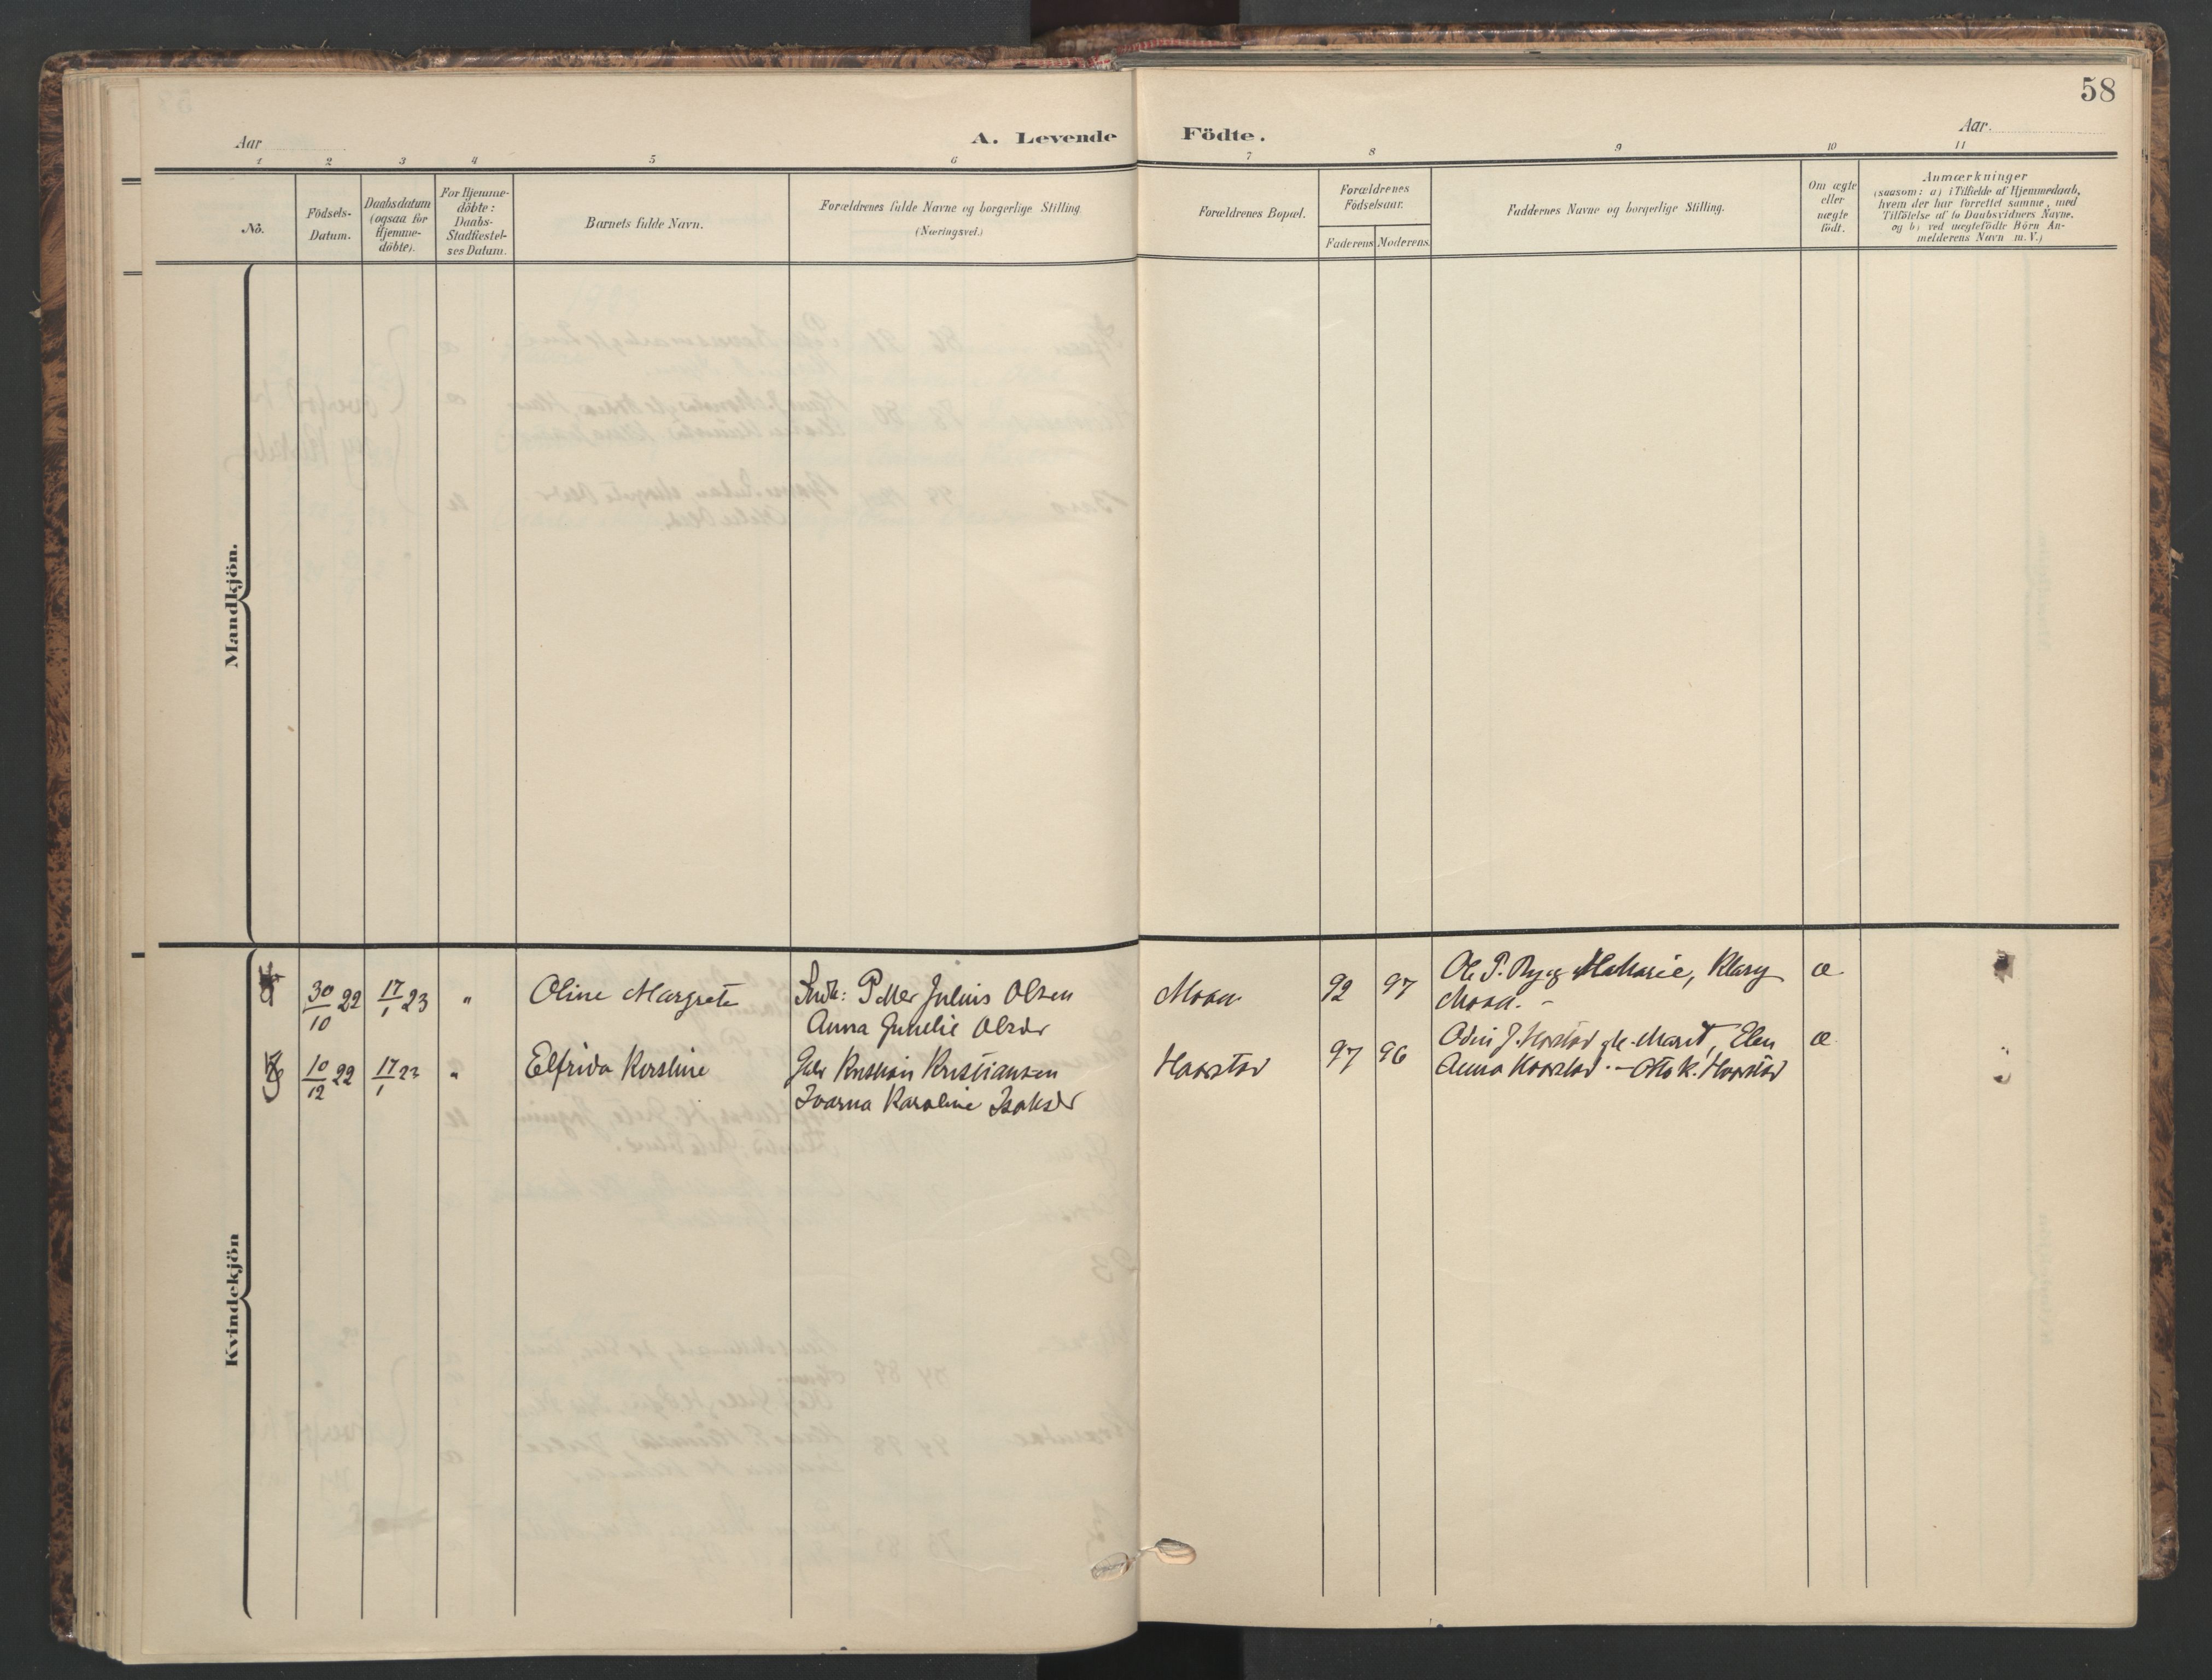 58
Aar
A. Levende Födte.
Aar.
1 2 3 4 5 6 7 8 9 10 11
No.
Födsels-
Datum.
Daabsdatum
(ogsaa for
Hjemme-
döbte).
For Hjemme-
döbte:
Daabs-
Stadfæstel-
ses Datum.
Barnets fulde Navn.
Forældrenes fulde Navne og borgerlige Stilling
(Næringsvei.)
Forældrenes Bopæl.
Forældrenes
Födselsaar.
Faderens Moderens
Faddernes Navne og borgerlige Stilling.
Om ægte
eller
uægte
födt.
Anmærkninger
(saasom: a) i Tilfælde af Hjemmedaab,
hvem der har forrettet samme, med
Tilföielse af to Daabsvidners Navne,
og b) ved uægtefödte Börn An-
melderens Navn m. V.)
Mandkjön.
Kvindekjön
30/10 22 17/1 23 " Oline Margrete
Julius Olsen
Anna Olsdr
Moaa 92 97
Ole P. Marie, Klary
Moaa. -
æ
10/12 22 17/1 23 " Elfrida Kerstine
Kristian Kristiansen
Ivarna Karoline Isaksdr
Haarstad 97 96
Odin J. Marit, Elen
Anna Haarstad. - Otto K. Haarstad
æ